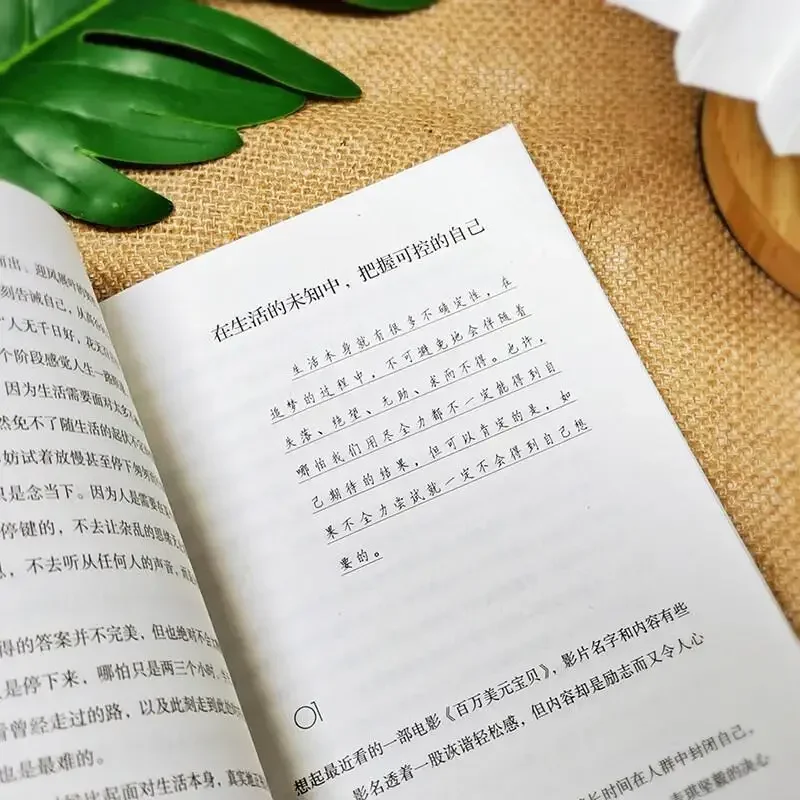 而出、迎风展
刻告诫自己，从
“人无千日好，花无
个阶段感觉人生一
因为生活需要面对太多
然免不了随生活的起伏
妨试着放慢甚至停下
只是念当下。因为人是需要在
停键的，不去让杂乱的思绪
，不去听从任何人的声音，而
得的答案并不完美，但也绝对不会
是停下来，哪怕只是两三个小时、
看曾经走过的路，以及此刻走到此处
也是最难的。
比起面对生活本身，真实地
在生活的未知中，把握可控的自己
生活本身就有很多不确定性，在
追梦的过程中，不可避免地会伴随着
失落、绝望、无助、求而不得。也许，
哪怕我们用尽全力都不一定能得到自
己期待的结果，但可以肯定的是，如
果不全力尝试就一定不会得到自己想
要的。
01
想起最近看的一部电影《百万美元宝贝》，影片名字和内容有些
影名透着一股诙谐轻松感，但内容却是励志而又令人心
长时间在人群中封闭自己，
琪坚毅的决心